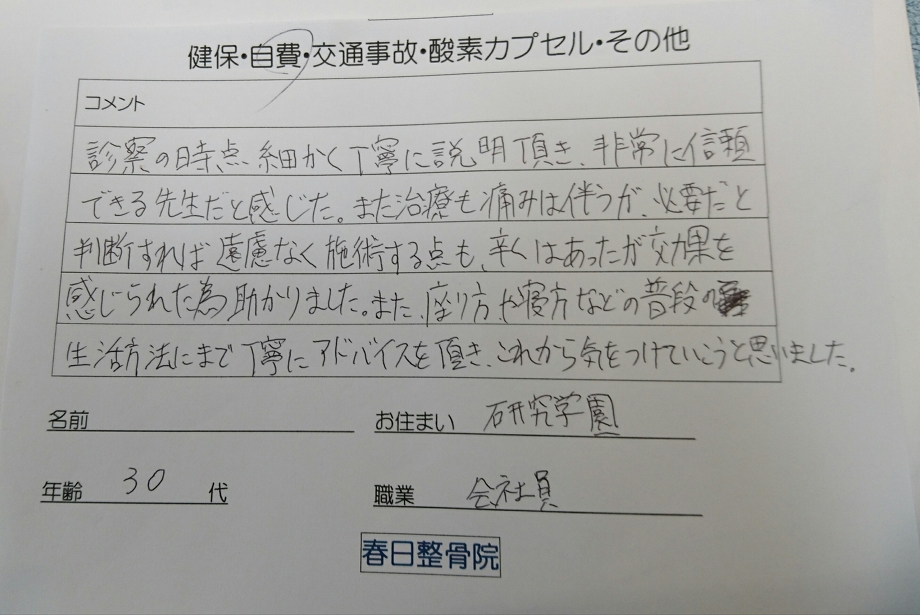 健保・自費・交通事故・酸素カプセル・その他
コメント
診察の時点 細かく丁寧に説明頂き、非常に信頼
できる先生だと感じた。また治療も痛みは伴うが、必要だと
判断すれば遠慮なく施術する点も、辛くはあったが効果を
感じられた為助かりました。また、座り方や寝方などの普段の
生活方法にまで丁寧にアドバイスを頂き、これから気をつけていこうと思いました。
名前
お住まい 研究学園
年齢 30 代
職業 会社員
春日整骨院